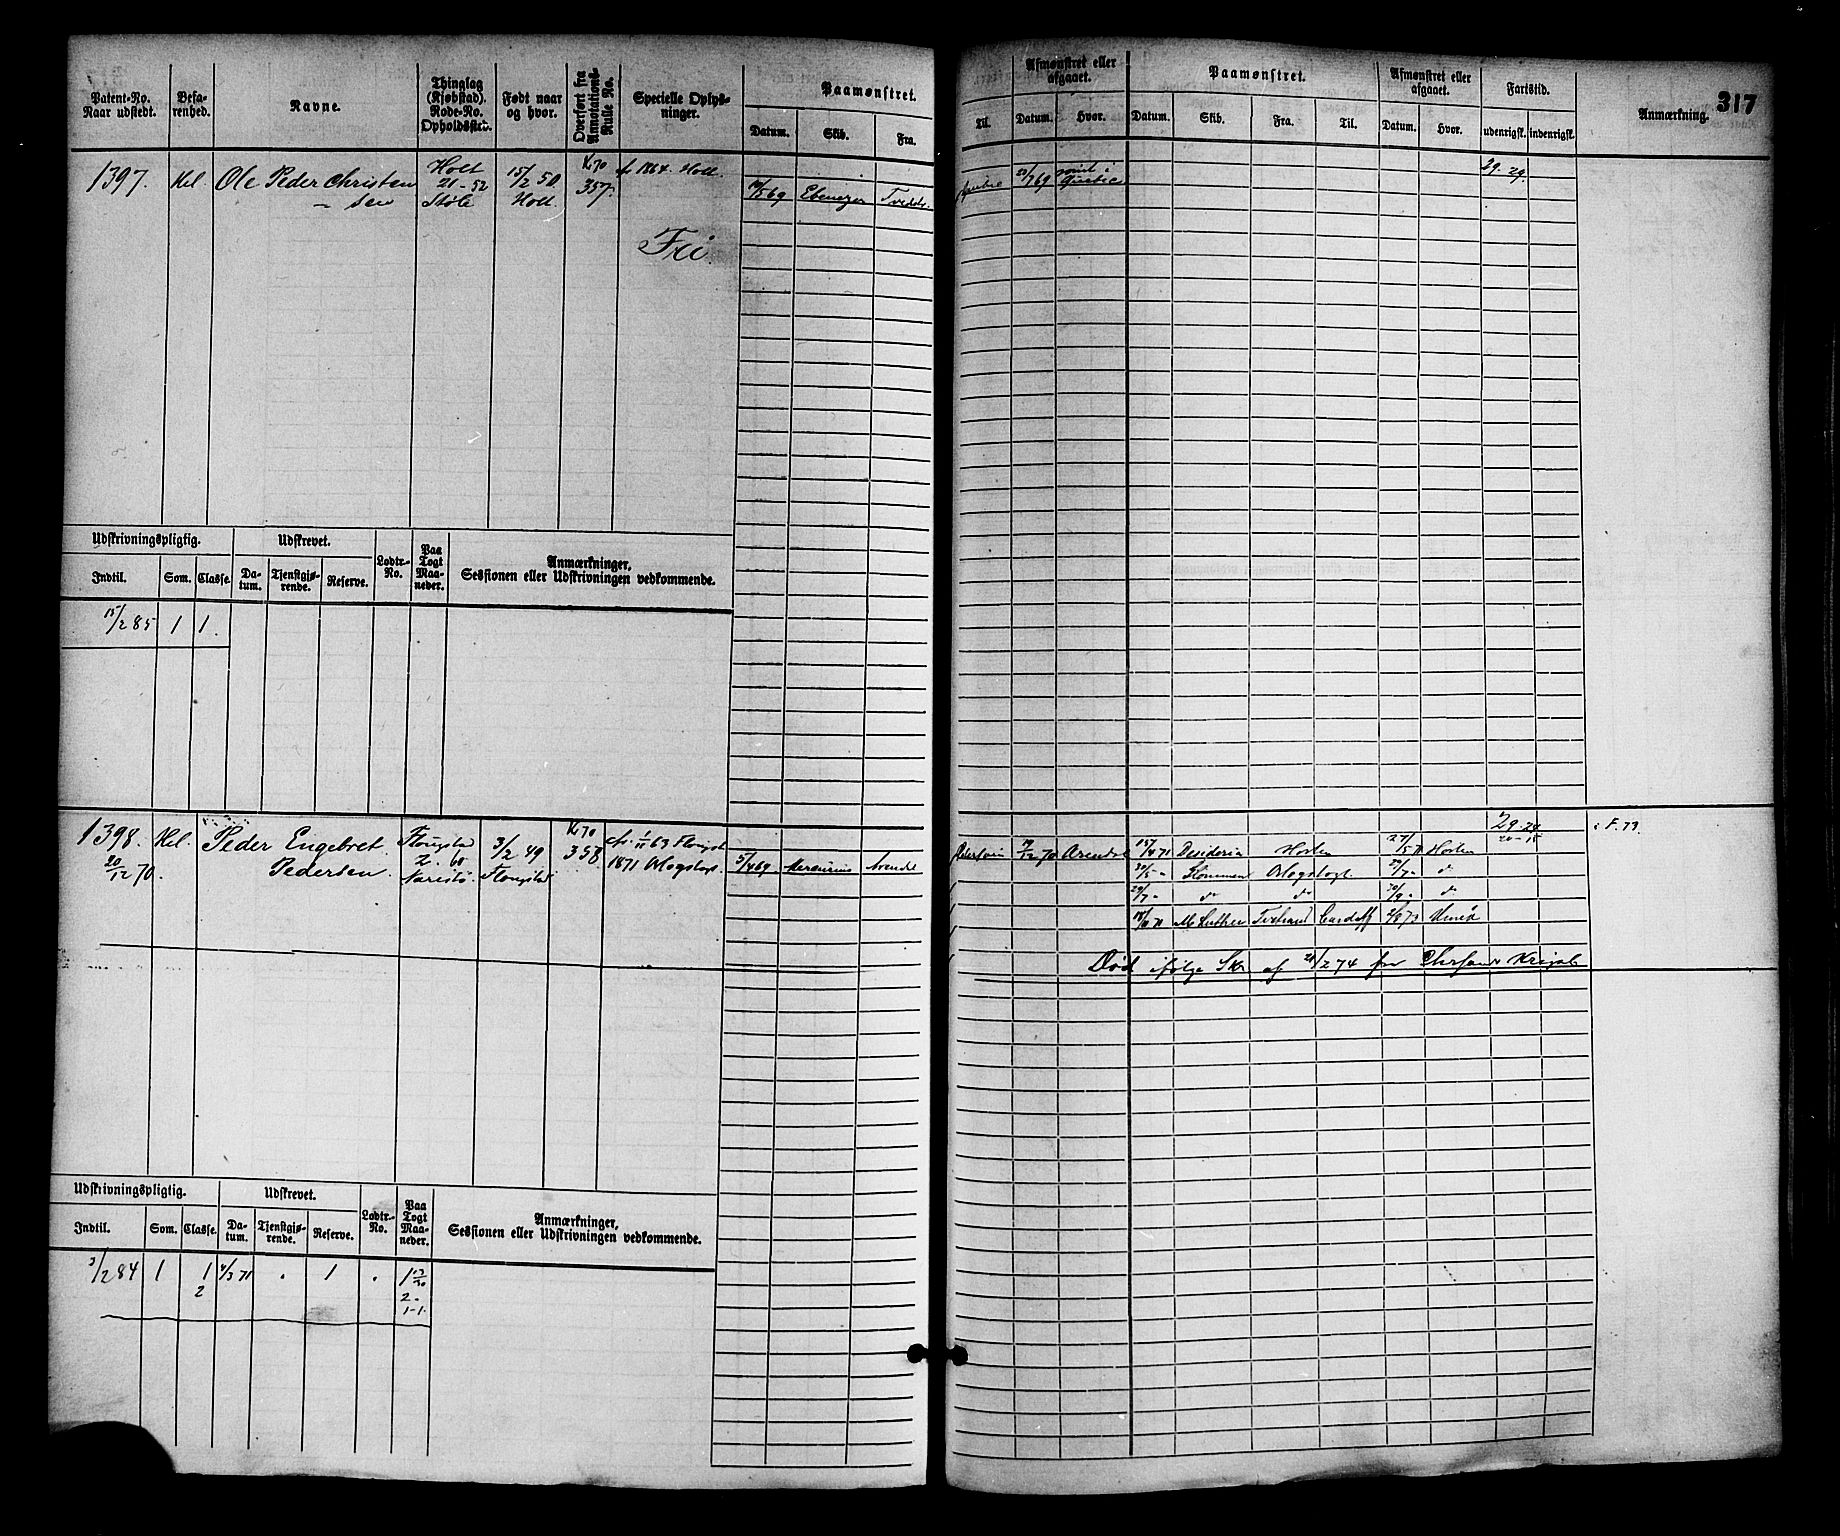 317
Patent-No. Naar udstedt.
Befarenhed.
Navne.
Thinglag (Kjøbstad). Rode-No. Opholdssted.
Født naar og hvor.
Overført fra Annotations-Rulle No.
Specielle Oplysninger.
Paamønstret.
Datum. Skib. Fra. Til.
Afmønstret eller afgaaet.
Datum. Hvor.
Paamønstret.
Datum. Skib. Fra. Til.
Afmønstret eller afgaaet.
Datum. Hvor.
Fartstid.
udenrigsk. indenrigsk.
Anmærkning.
1397. Hel. Ole Peder Christen
- sen
Holt
21-52
Støle
15/2 50
Holt
K. 70
357.
1864. Holt.
Fri.
69 Ebenezer Tvedestr.
69 Quebec
29. 29.
Udskrivningspligtig. Udskrevet. Lodtr.-No. Paa Togt Maaneder. Anmærkninger, Sessionen eller Udskrivningen vedkommende.
Indtil. Som. Classe. Datum. Tjenstgjørende. Reserve.
15/2 85 1 1.
1398. Hel. Peder Engebret
20/12 70. Pedersen.
Flougstad
2. 60
Narestø
3/2 49
Flougstad
K. 70
358
63 Flougst.
1871 Orlogstogt.
5/4 69 Mercurius Arendal
12 70 Arendal
15/4 71 Desideria Horten 27/5 71 Horten
30/5 " Kommen Orlogstogt 29/7 " do
29/7 " do do 30/9 " do
71 M. Luther Cardiff 73
29. 20
F. 73.
Død ifølge Skr. af 21/2 74 fra
Udskrivningspligtig. Udskrevet. Lodtr.-No. Paa Togt Maaneder. Anmærkninger, Sessionen eller Udskrivningen vedkommende.
Indtil. Som. Classe. Datum. Tjenstgjørende. Reserve.
3/2 84 1 1 4/3 71 . 1 . 1
2 2.
1-1.